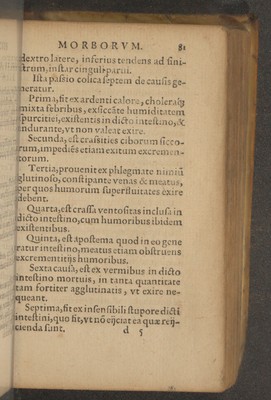 MORBORVM. 81
dextro latere, inferius tendens ad sini-
strum, instar cinguli parui.
Ista passio colica septem de causis ge-
neratur.
Prima, fit ex ardenti calore, cholerאּ
mixta febribus, exsiccãte humiditatem
spurcitiei, existentis in dicto intestino, &
indurante, vt non valeat exire.
Secunda, est crassities ciborum sicco-
rum, impediẽs etiam exitum excremen-
torum.
Tertia, prouenit ex phlegmate nimiũ
glutinoso, constipante venas & meatus,
per quos humorum superfluitates exire
debent.
Quarta, est crassa ventositas inclusa in
dicto intestino, cum humoribus ibidem
existentibus.
Quinta, est apostema quod in eo gene
ratur intestino, meatus etiam obstruens
excrementitijs humoribus.
Sexta causa, est ex vermibus in dicto
intestino mortuis, in tanta quantitate
tam fortiter agglutinatis, vt exire ne-
queant.
Septima, fit ex insensibili stupore dicti
intestini, quo fit, vt nõ eijciat ea quæ reij-
cienda sunt.
d 5